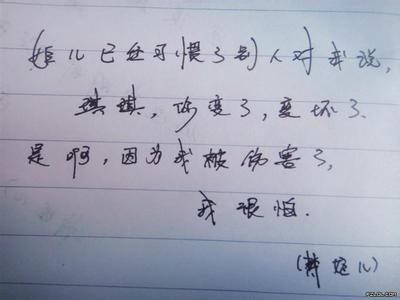 姬儿已经习惯了别人对我说,
琪琪,你变了,变坏了.
是啊,因为我被伤害了,
我很怕.
(韩姬儿)